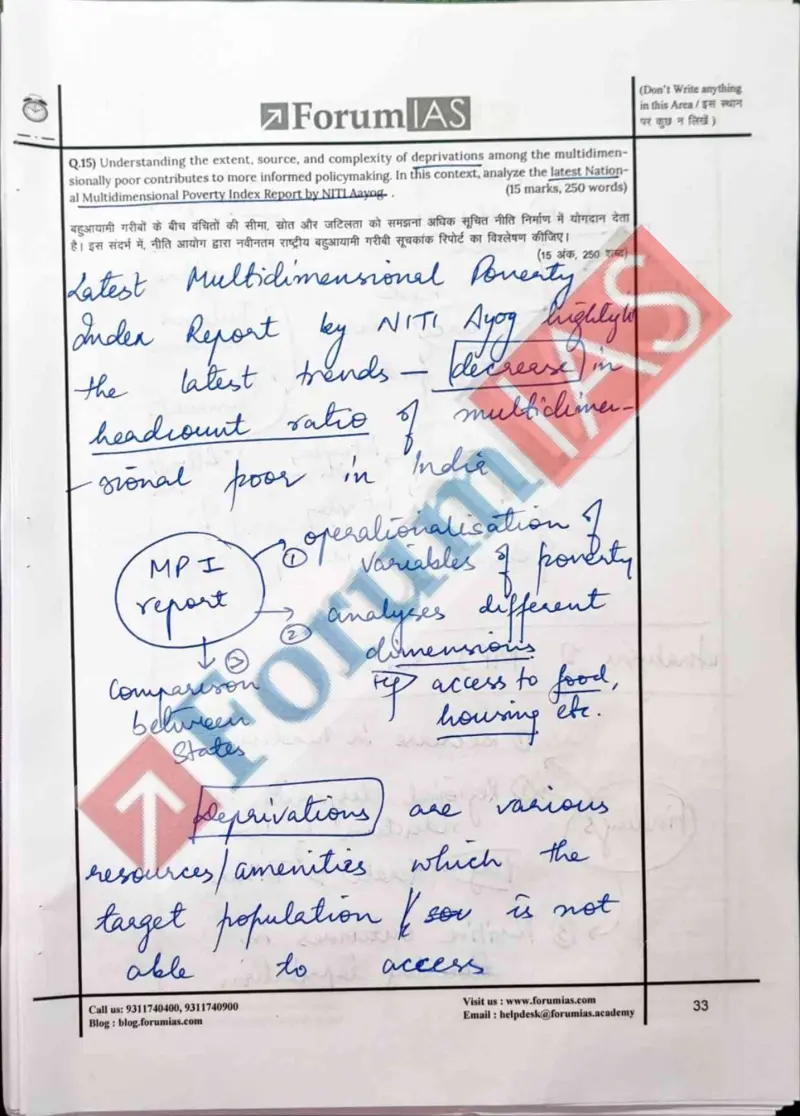 (Don't Write anything
in this Area / इस स्थान
पर कुछ न लिखें )
ForumIAS
Q.15) Understanding the extent, source, and complexity of deprivations among the multidimen-
sionally poor contributes to more informed policymaking. In this context, analyze the latest Nation-
al Multidimensional Poverty Index Report by NITI Aayog. .
(15 marks, 250 words)
बहुआयामी गरीबों के बीच वंचितों की सीमा, स्रोत और जटिलता को समझना अधिक सूचित नीति निर्माण में योगदान देता
है। इस संदर्भ में, नीति आयोग द्वारा नवीनतम राष्ट्रीय बहुआयामी गरीबी सूचकांक रिपोर्ट का विश्लेषण कीजिए।
(15 अंक, 250 शब्द)
Latest Multidimensional Poverty
Index Report by NITI Ayog
the latest trends – decrease in
headcount ratio of multidimen-
-sional poor in India
MPI
report
① operationalisation of
variables of poverty
② analyses different
dimensions
access to food,
housing etc.
③
Comparison
between
States
Deprivations are various
resources/amenities which the
target population / is not
able to access
ForumIAS
Call us: 9311740400, 9311740900
Blog : blog.forumias.com
Visit us : www.forumias.com
Email : helpdesk@forumias.academy
33